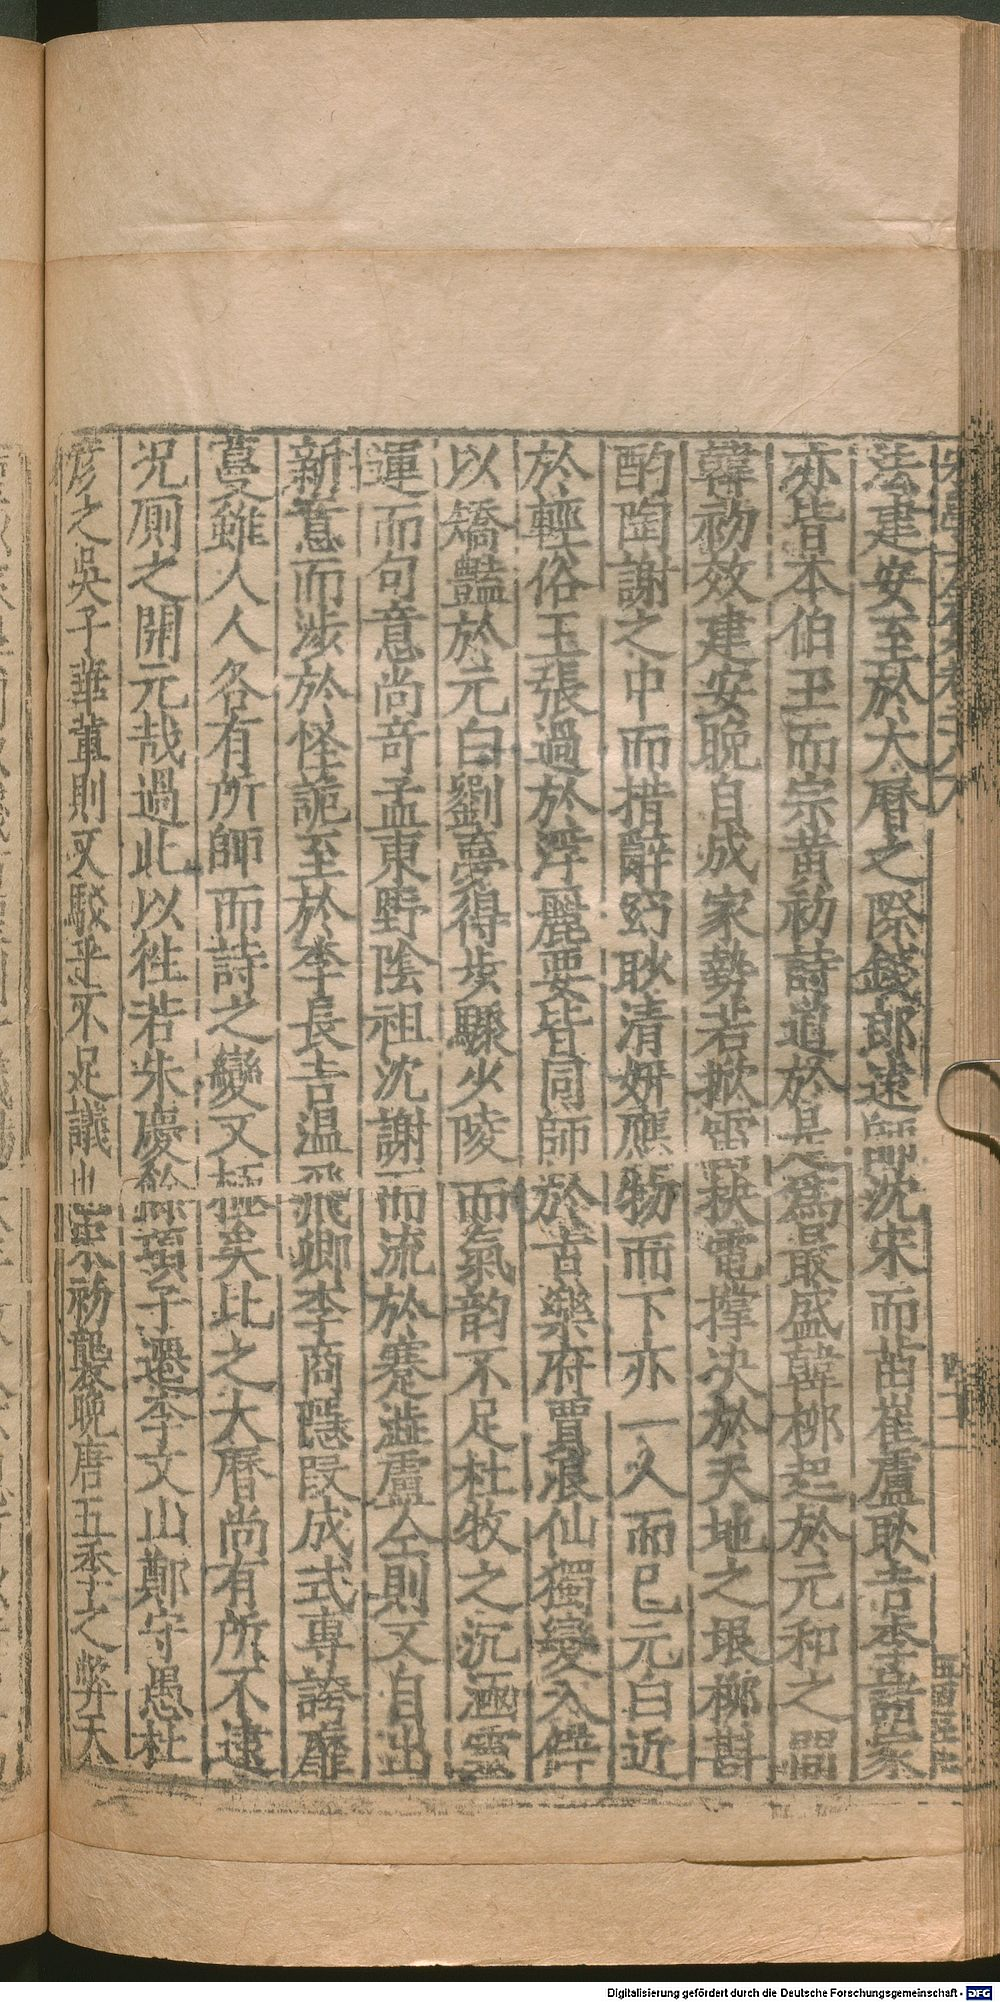 法建安至於大曆之際錢郎遠師沈宋而苗崔盧耿吉李諸家
亦皆本伯玉而宗黃初詩道於是爲最盛韓柳起於元和之間
韓初效建安晚自成家勢若掀雷抉電撐決於天地之垠柳斟
酌陶謝之中而措辭窈眇清妍應物而下亦一人而已元白近
於輕俗王張過於浮麗要皆同師於古樂府賈浪仙獨變入僻
以矯豔於元白劉夢得步驟少陵而氣韵不足杜牧之沉涵靈
運而句意尚奇孟東野陰祖沈謝而流於蹇澁盧仝則又自出
新意而涉於怪詭至於李長吉溫飛卿李商隱段成式專誇靡
蔓雖人人各有所師而詩之變又極矣比之大曆尚有所不逮
况厠之開元哉過此以徃若朱慶餘項子遷李文山鄭守愚杜
彥之吳子華軰則又駁乎不足議也宋初襲晚唐五季之弊天
Digitalisierung gefördert durch die Deutsche Forschungsgemeinschaft - DFG